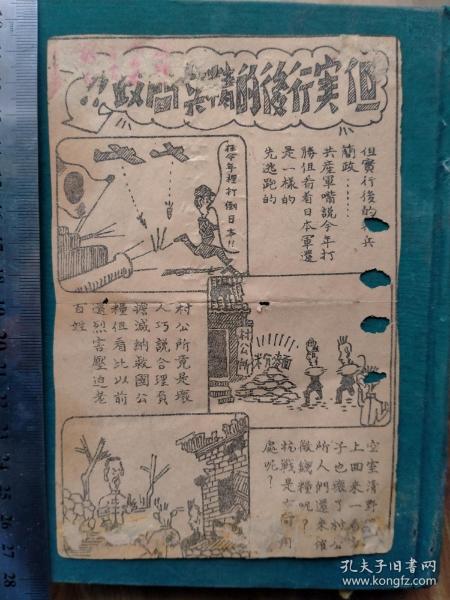 但实行後的精兵简政!!
但實行後的兵
簡政……
共産軍嘴說今年打
勝但看看日本軍還
是一樣的
先逃跑的
在今年裡打倒日本!!
村公所
麵
村公所竟是壞
人巧說合理負
擔減納救國公
糧但看比以前
還烈害壓迫老
百姓
空室清野
上回來一看
子也壞了村公
所人們還來催
徵總糧呢?
抗戰是有何用
處呢?
孔夫子旧书网
www.kongfz.com